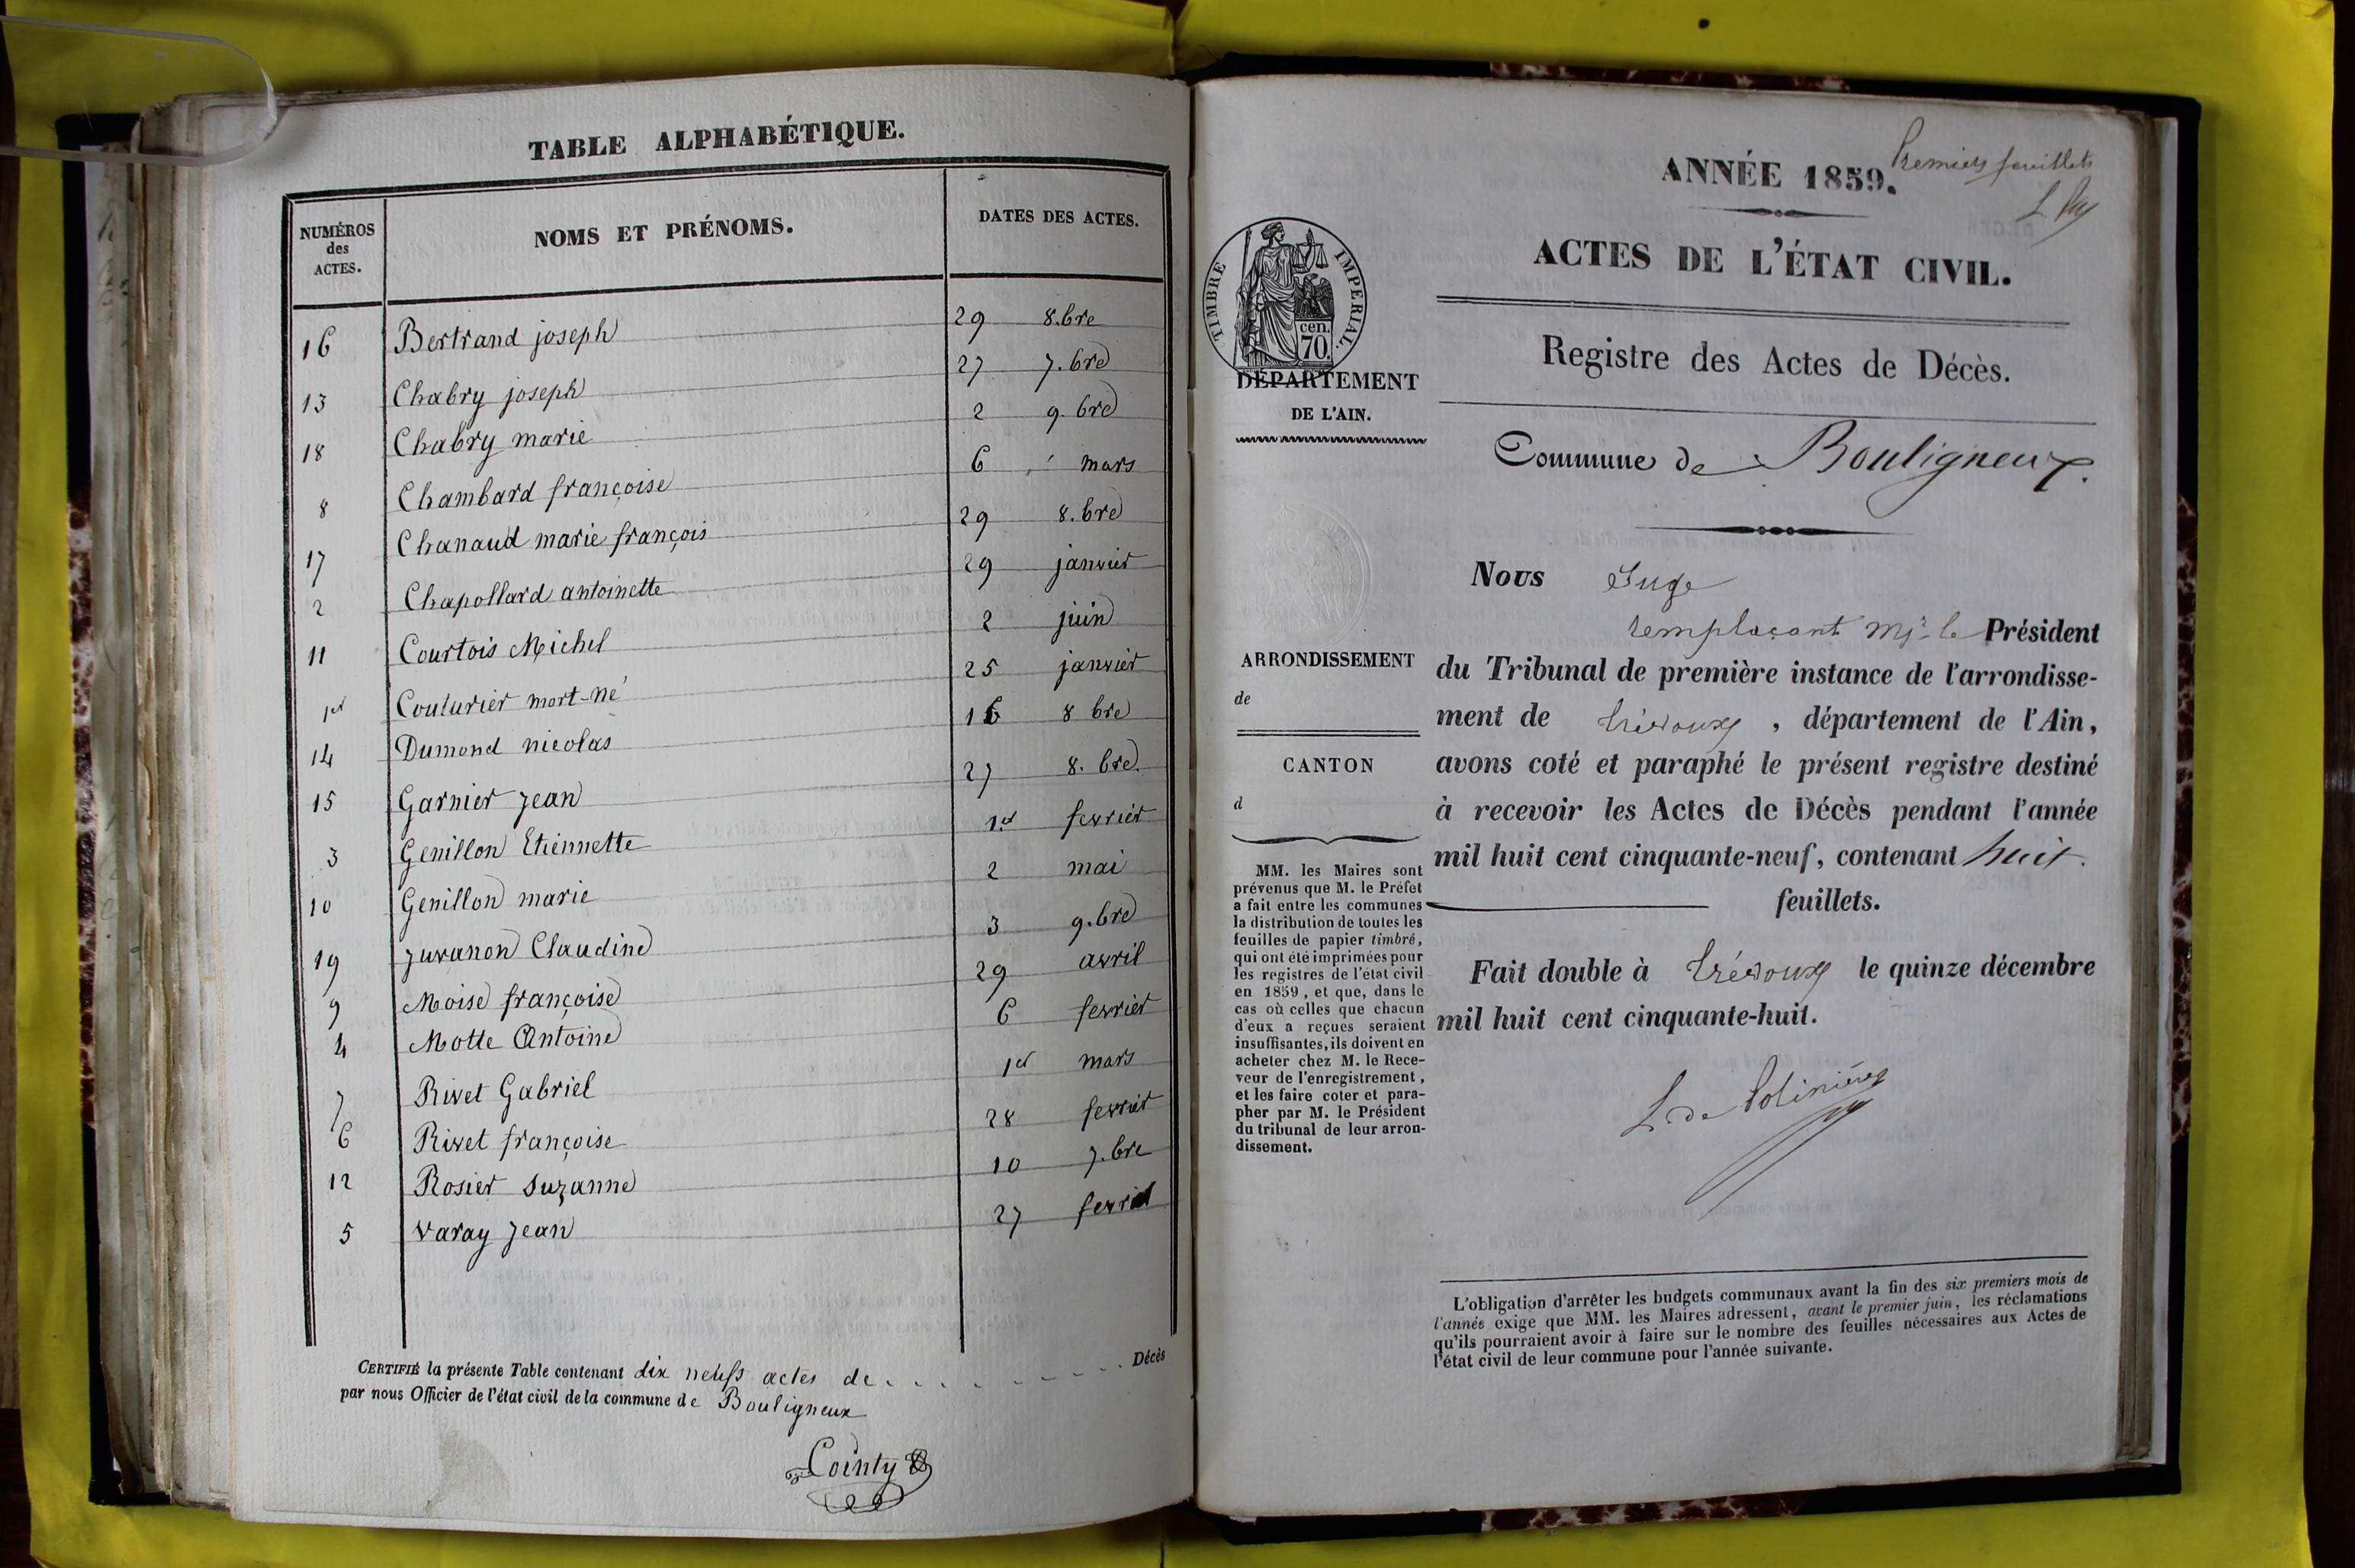 TABLE ALPHABÉTIQUE.
NUMÉROS
des
ACTES.
NOMS ET PRÉNOMS.
DATES DES ACTES.
16 Bertrand joseph 29 8.bre
13 Chabry joseph 27 7.bre
18 Chabry marie 2 9.bre
8 Chambard françoise 6 mars
17 Chanaud marie françois 29 8.bre
2 Chapollard antoinette 29 janvier
11 Courtois Michel 2 juin
1er Couturier mort-né 25 janvier
14 Dumond nicolas 16 8 bre
15 Garnier Jean 27 8.bre
3 Genillon Etiennette 1er fevrier
10 Genillon marie 2 mai
19 Juvanon Claudine 3 9.bre
9 Moise françoise 29 avril
4 Motte Antoine 6 fevrier
7 Rivet Gabriel 1er mars
6 Rivet françoise 28 fevrier
12 Rosier Suzanne 10 7.bre
5 Varay Jean 27
CERTIFIÉ la présente Table contenant dix neufs actes de Décès
par nous Officier de l'état civil de la commune de Bouligneux
Cointy
Premiers feuillets
ANNÉE 1859.
ACTES DE L'ÉTAT CIVIL.
Registre des Actes de Décès.
Commune de Bouligneux.
TIMBRE IMPERIAL.
cen.
70.
DÉPARTEMENT
DE L'AIN.
ARRONDISSEMENT
de
CANTON
d
MM. les Maires sont
prévenus que M. le Préfet
a fait entre les communes
la distribution de toutes les
feuilles de papier timbré,
qui ont été imprimées pour
les registres de l'état civil
en 1859, et que, dans le
cas où celles que chacun
d'eux a reçues seraient
insuffisantes, ils doivent en
acheter chez M. le Rece-
veur de l'enregistrement,
et les faire coter et para-
pher par M. le Président
du tribunal de leur arron-
dissement.
Nous Juge
remplaçant Mr le Président
du Tribunal de première instance de l'arrondisse-
ment de trévoux, département de l'Ain,
avons coté et paraphé le présent registre destiné
à recevoir les Actes de Décès pendant l'année
mil huit cent cinquante-neuf, contenant huit.
feuillets.
Fait double à trévoux le quinze décembre
mil huit cent cinquante-huit.
L'obligation d'arrêter les budgets communaux avant la fin des six premiers mois de
l'année exige que MM. les Maires adressent, avant le premier juin, les réclamations
qu'ils pourraient avoir à faire sur le nombre des feuilles nécessaires aux Actes de
l'état civil de leur commune pour l'année suivante.